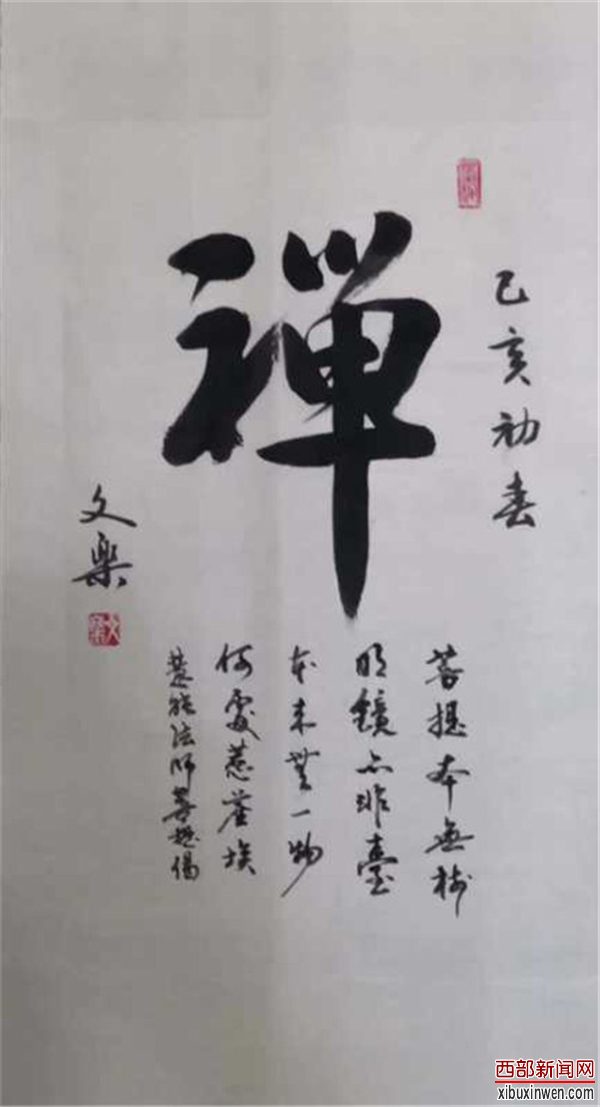 禪
己亥初春
菩提本無樹
明鏡亦非臺
本来無一物
何處惹塵埃
慧能法师菩提偈
文樂
西部新闻网
xibuxinwen.com